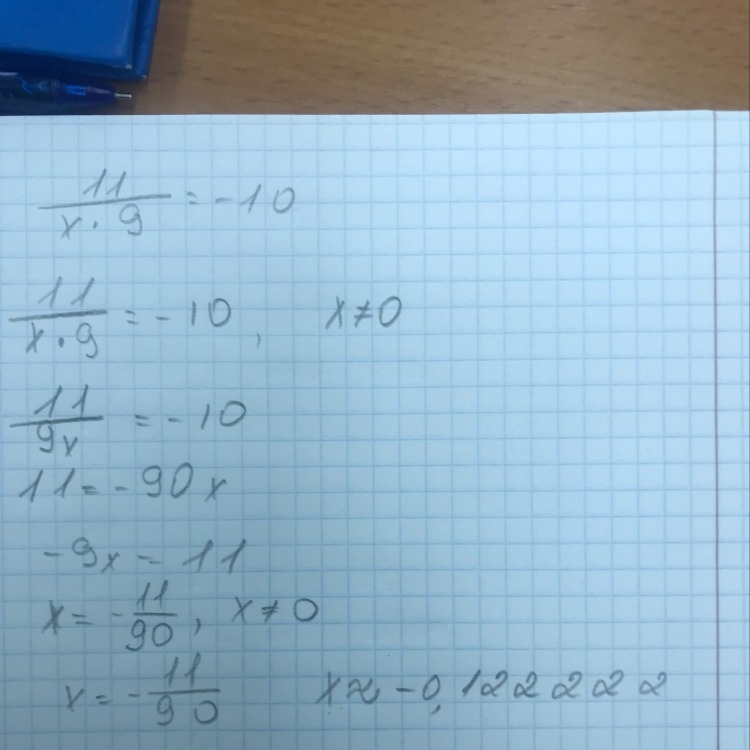 11/(x · 9) = -10
11/(x · 9) = -10, x ≠ 0
11/(9x) = -10
11 = -90x
-9x - 11
x = -11/90, x ≠ 0
x = -11/90 x ≈ -0,122222